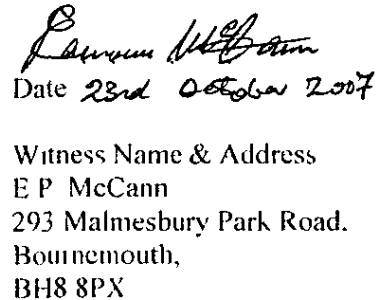 McCann
Date 23rd October 2007
Witness Name & Address
E P McCann
293 Malmesbury Park Road.
Bournemouth,
BH8 8PX